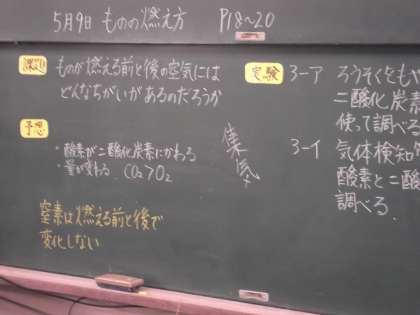 5月9日 ものの燃え方 P18~20
課題 ものが燃える前と後の空気には
どんなちがいがあるのだろうか
予想
・酸素が二酸化炭素にかわる
・量が変わる CO2>O2
窒素は燃える前と後で
変化しない
集気
実験 3-ア ろうそくをもや
二酸化炭素
使って調べる
3-イ 気体検知
酸素と二酸
調べる